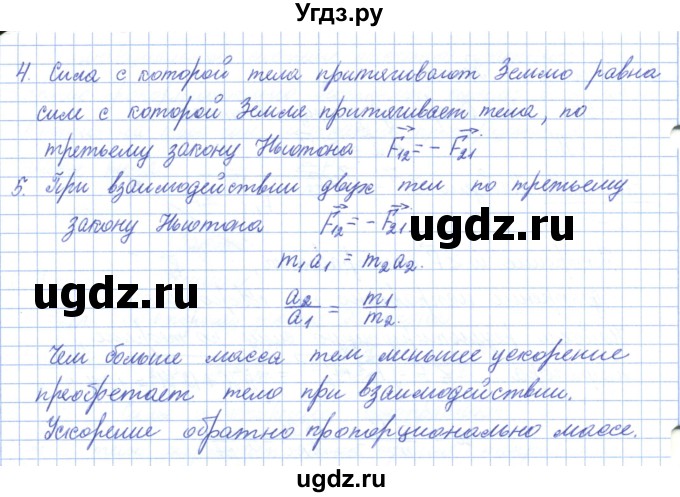 Угдз.ру
4. Сила с которой тела притягивают Землю равна
сил с которой Земля притягивает тела, по
третьему закону Ньютона F₁₂ = - F₂₁.
5. При взаимодействии двух тел по третьему
закону Ньютона F₁₂ = - F₂₁.
m₁a₁ = m₂a₂.
a₂/a₁ = m₁/m₂.
Чем больше масса тем меньшее ускорение
преобретает тело при взаимодействии.
Ускорение обратно пропорционально массе.
ugdz.ru
ugdz.ru
ugdz.ru
ugdz.ru
ugdz.ru